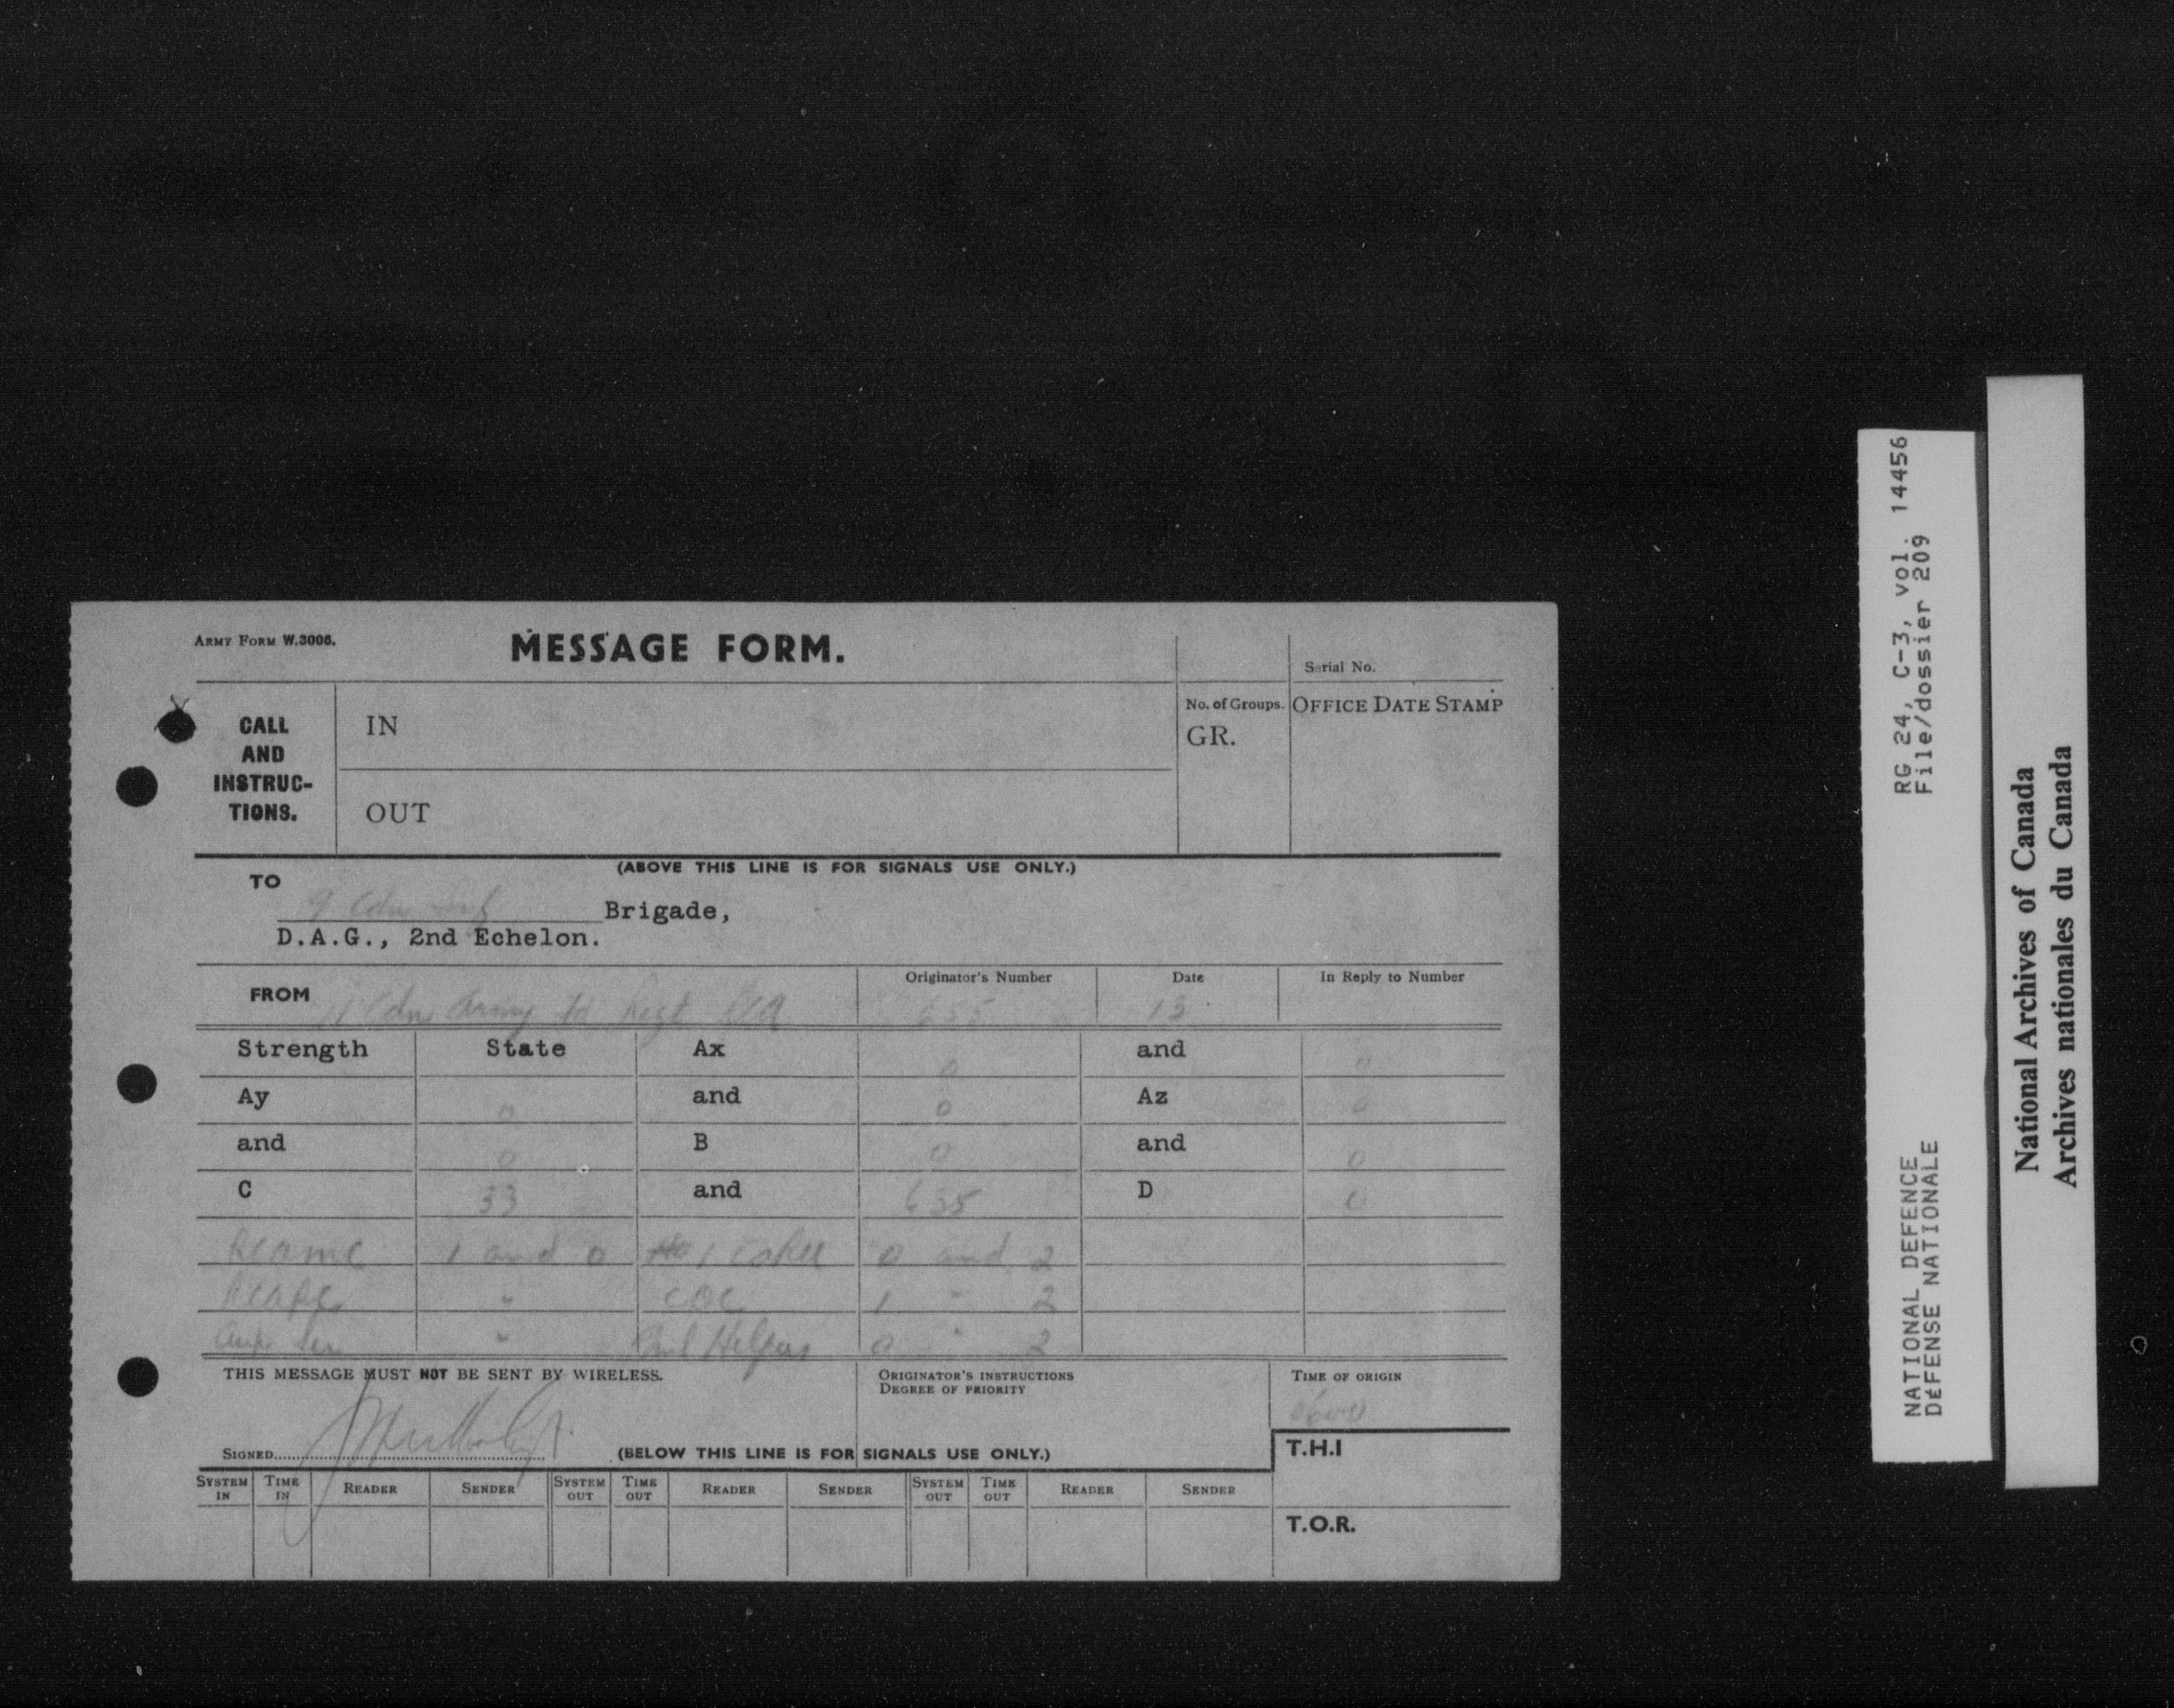 ARMY FORM W.3006.
MESSAGE FORM.
Serial No.
CALL AND INSTRUC-TIONS.
IN
OUT
No. of Groups.
GR.
OFFICE DATE STAMP
(ABOVE THIS LINE IS FOR SIGNALS USE ONLY.)
TO
9 Cdn Inf Brigade,
D.A.G., 2nd Echelon.
FROM
Cdn Army Fd Regt RCA
Originator's Number
Date
13
In Reply to Number
Strength State Ax 0 and 0
Ay 0 and 0 Az 0
and 0 B 0 and 0
C 33 and 635 D 0
RCAMC 1 and 0 0 and 2
RCAPC " COC 1 " 2
" Helpers 0 " 2
THIS MESSAGE MUST NOT BE SENT BY WIRELESS.
ORIGINATOR'S INSTRUCTIONS
DEGREE OF PRIORITY
TIME OF ORIGIN
0600
SIGNED
(BELOW THIS LINE IS FOR SIGNALS USE ONLY.)
T.H.I
SYSTEM IN TIME IN READER SENDER SYSTEM OUT TIME OUT READER SENDER SYSTEM OUT TIME OUT READER SENDER
T.O.R.
RG 24, C-3, vol. 14456
File/dossier 209
NATIONAL DEFENCE
DÉFENSE NATIONALE
National Archives of Canada
Archives nationales du Canada